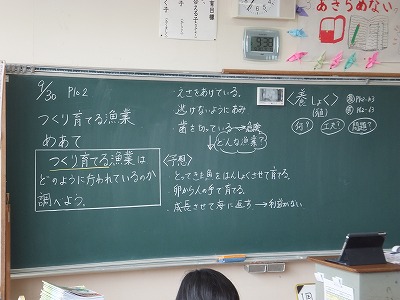 あきらめない。
9/30 P102
つくり育てる漁業
めあて
つくり育てる漁業は
どのように行われているのか
調べよう。
・えさをあげている。
・逃げないようにあみ
・歯を切っている→危険
どんな漁業?
〈予想〉
・とってきた魚をはんしょくさせて育てる。
・卵から人の手で育てる。
・成長させて海に返す→利益がない
〈養しょく〉
(殖)
何?
工夫?
問題?